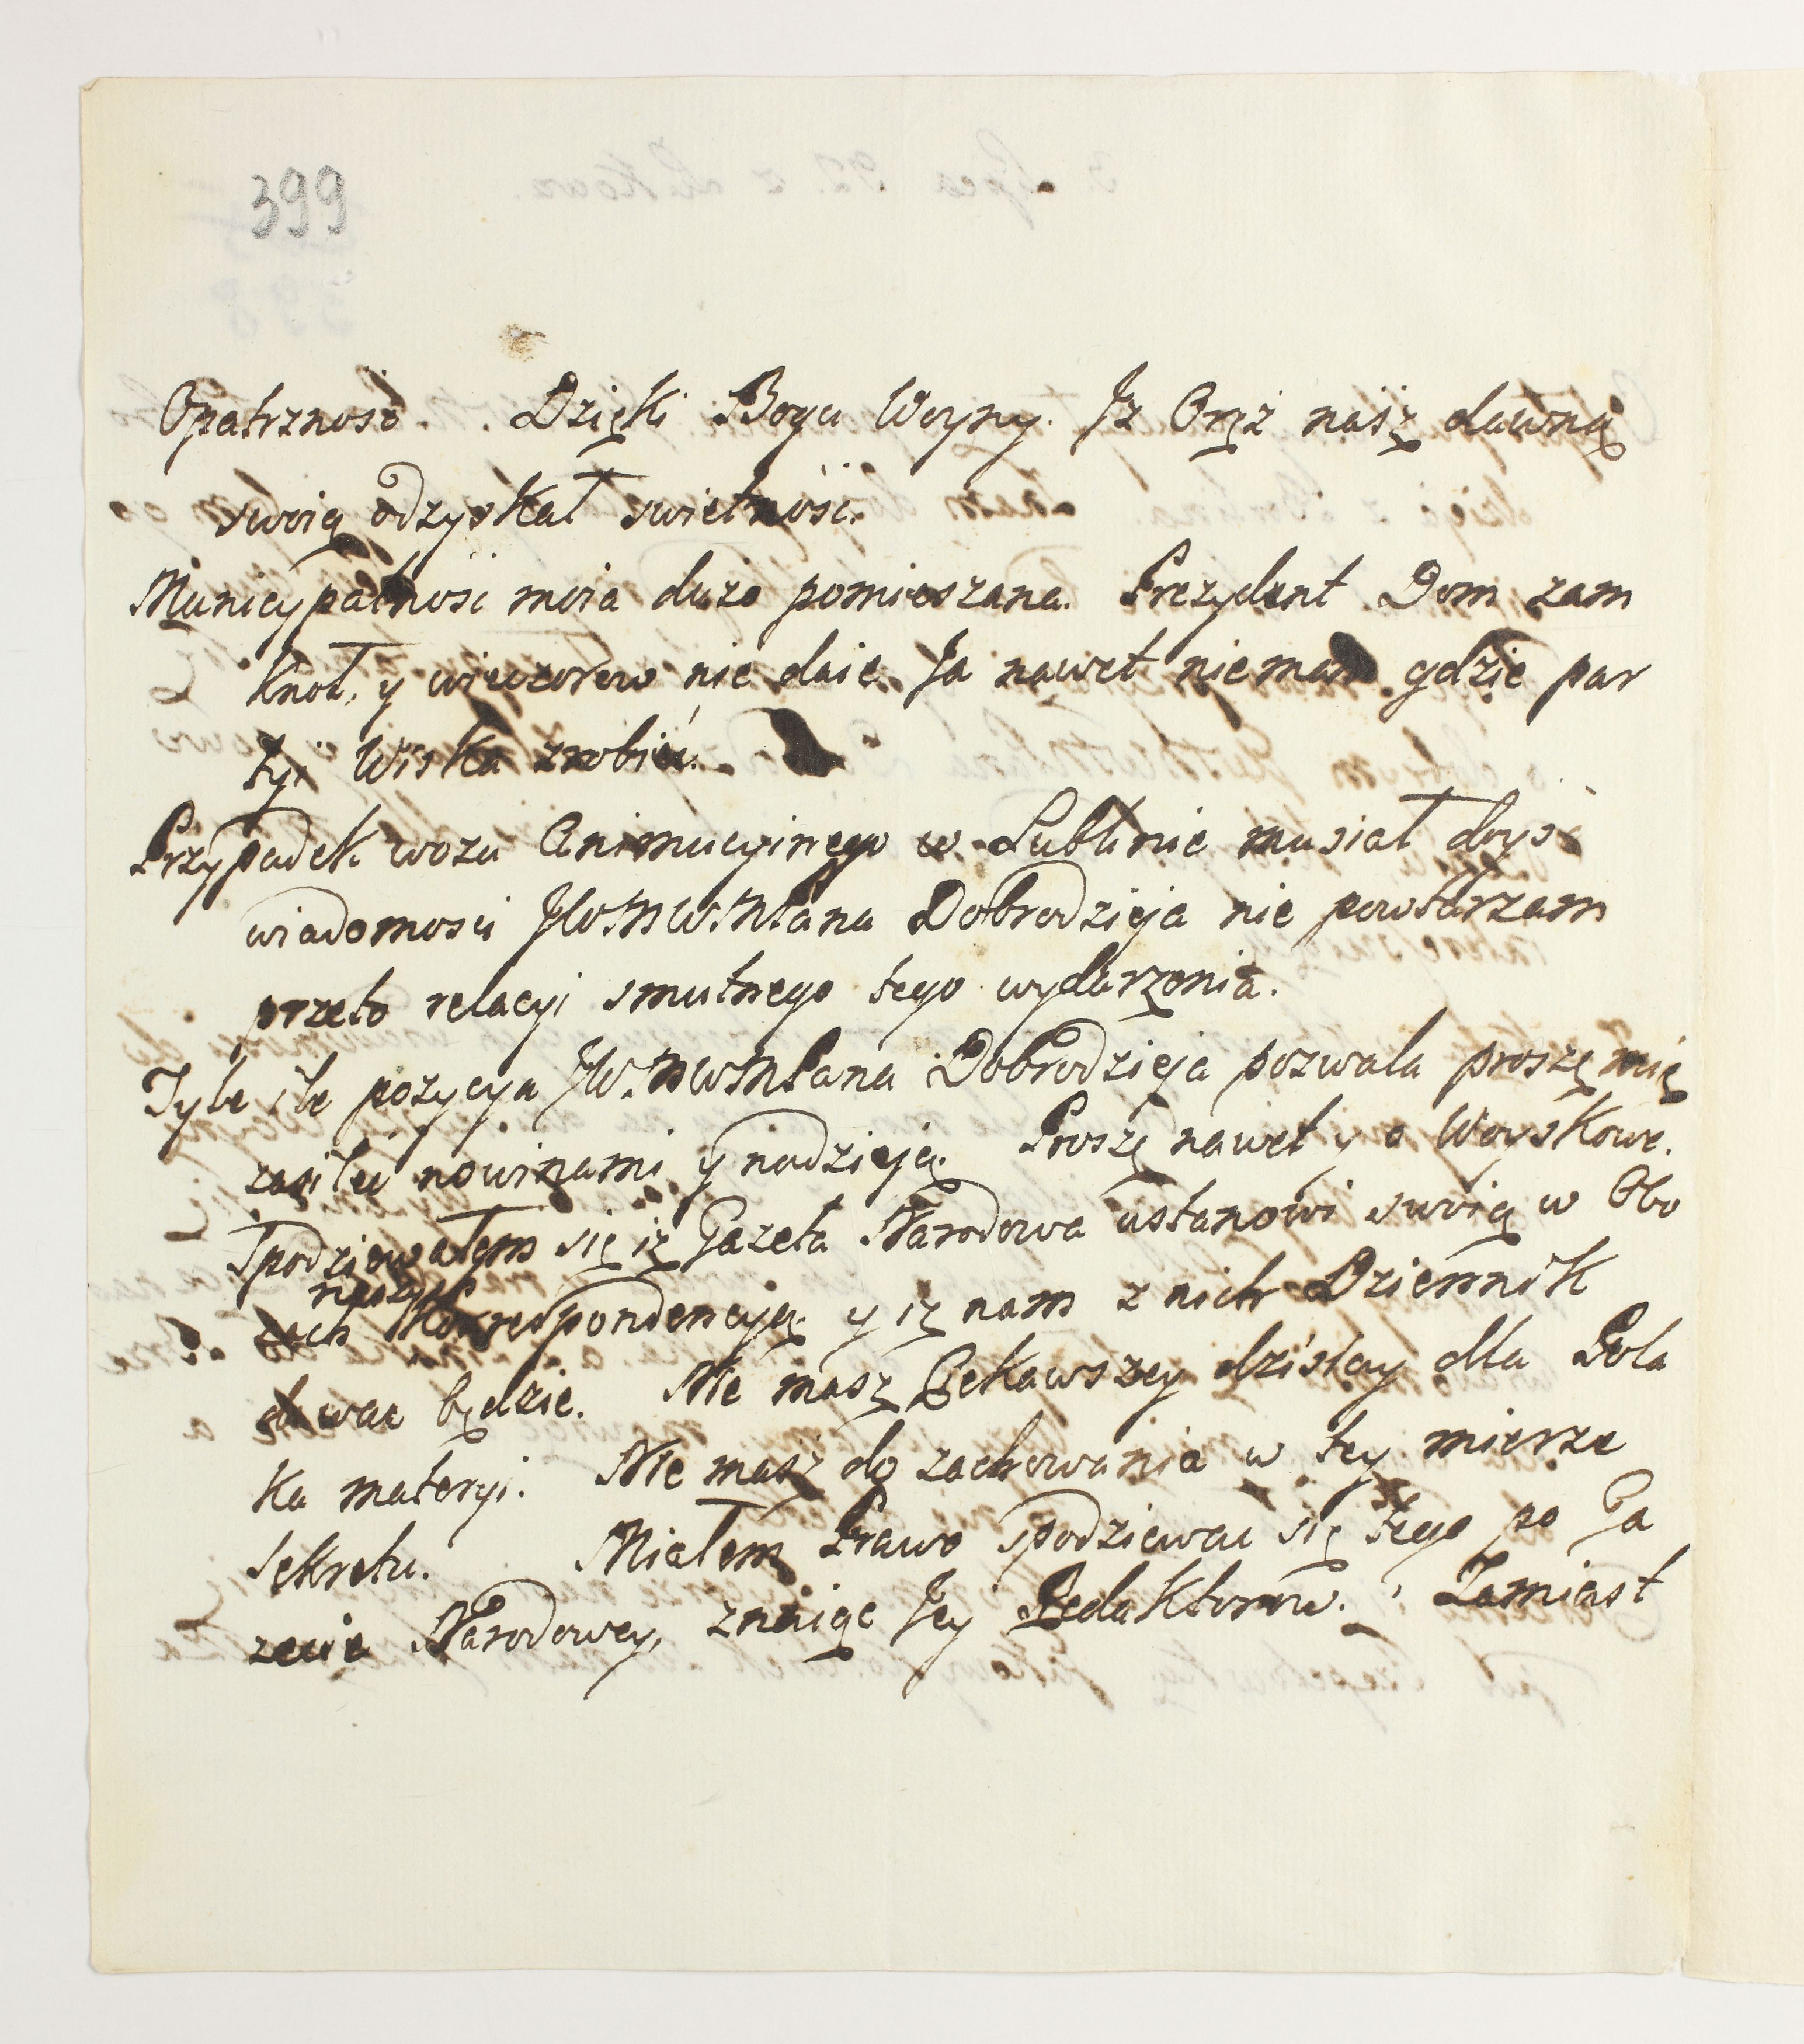 399
Opatrznosc. . Dzięki Bogu Woyny. Jz Oręż nasz dawną
swoią odzyskał swietnosc.
Municypalnosc moia dużo pomieszana. Prezydent Dom zam
knoł, y wieczorow nie daie Ja nawet niemam gdzie par
tyi Wiska zrobić.
Przypadek wozu Animucyinego w Lublinie musiał doysc
wiadomosci JWWMPana Dobrodzieja nie powtarzam
przeto relacyi smutnego tego wydarzenia.
Tyle ile pozycya JWWMPana Dobrodzieja pozwala proszę mię
zasilić nowinami y nadzieją. Proszę nawet y o Woyskowe.
Spodziewałem się iz Gazeta Narodowa ustanowi swoią w Obo
zach naszych Korrespondencyą. y iz nam z nich Dziennik
dawac będzie. Nie masz Ciekawszey dzisiay dla Pola
ka materyi. Nie masz do zachowania w tey mierze
sekretu. Miałem Prawo spodziewac się tego po Ga
zecie Narodowey, znaiąc Jey Redaktorow. Zamiast